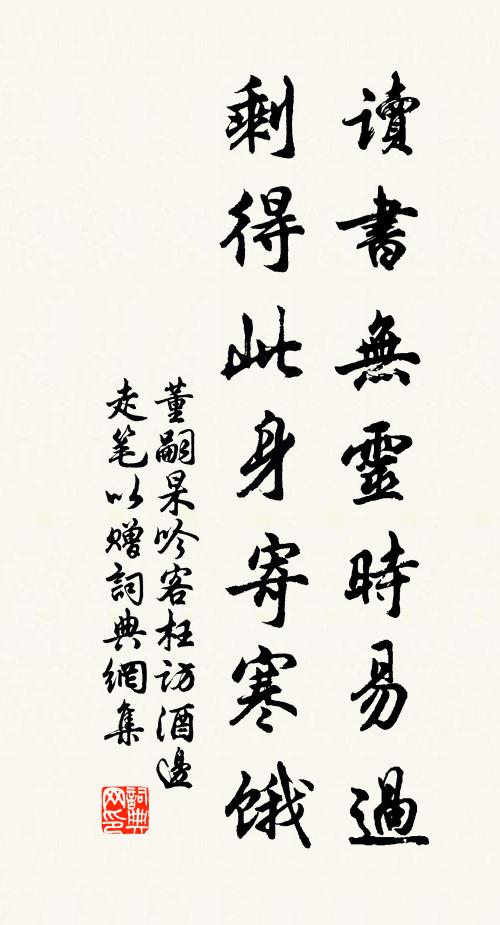 讀書無靈時易過
剩得此身寄寒餓
董嗣杲吟客枉訪酒邊
走笔以贈詞典網集
詞典网印